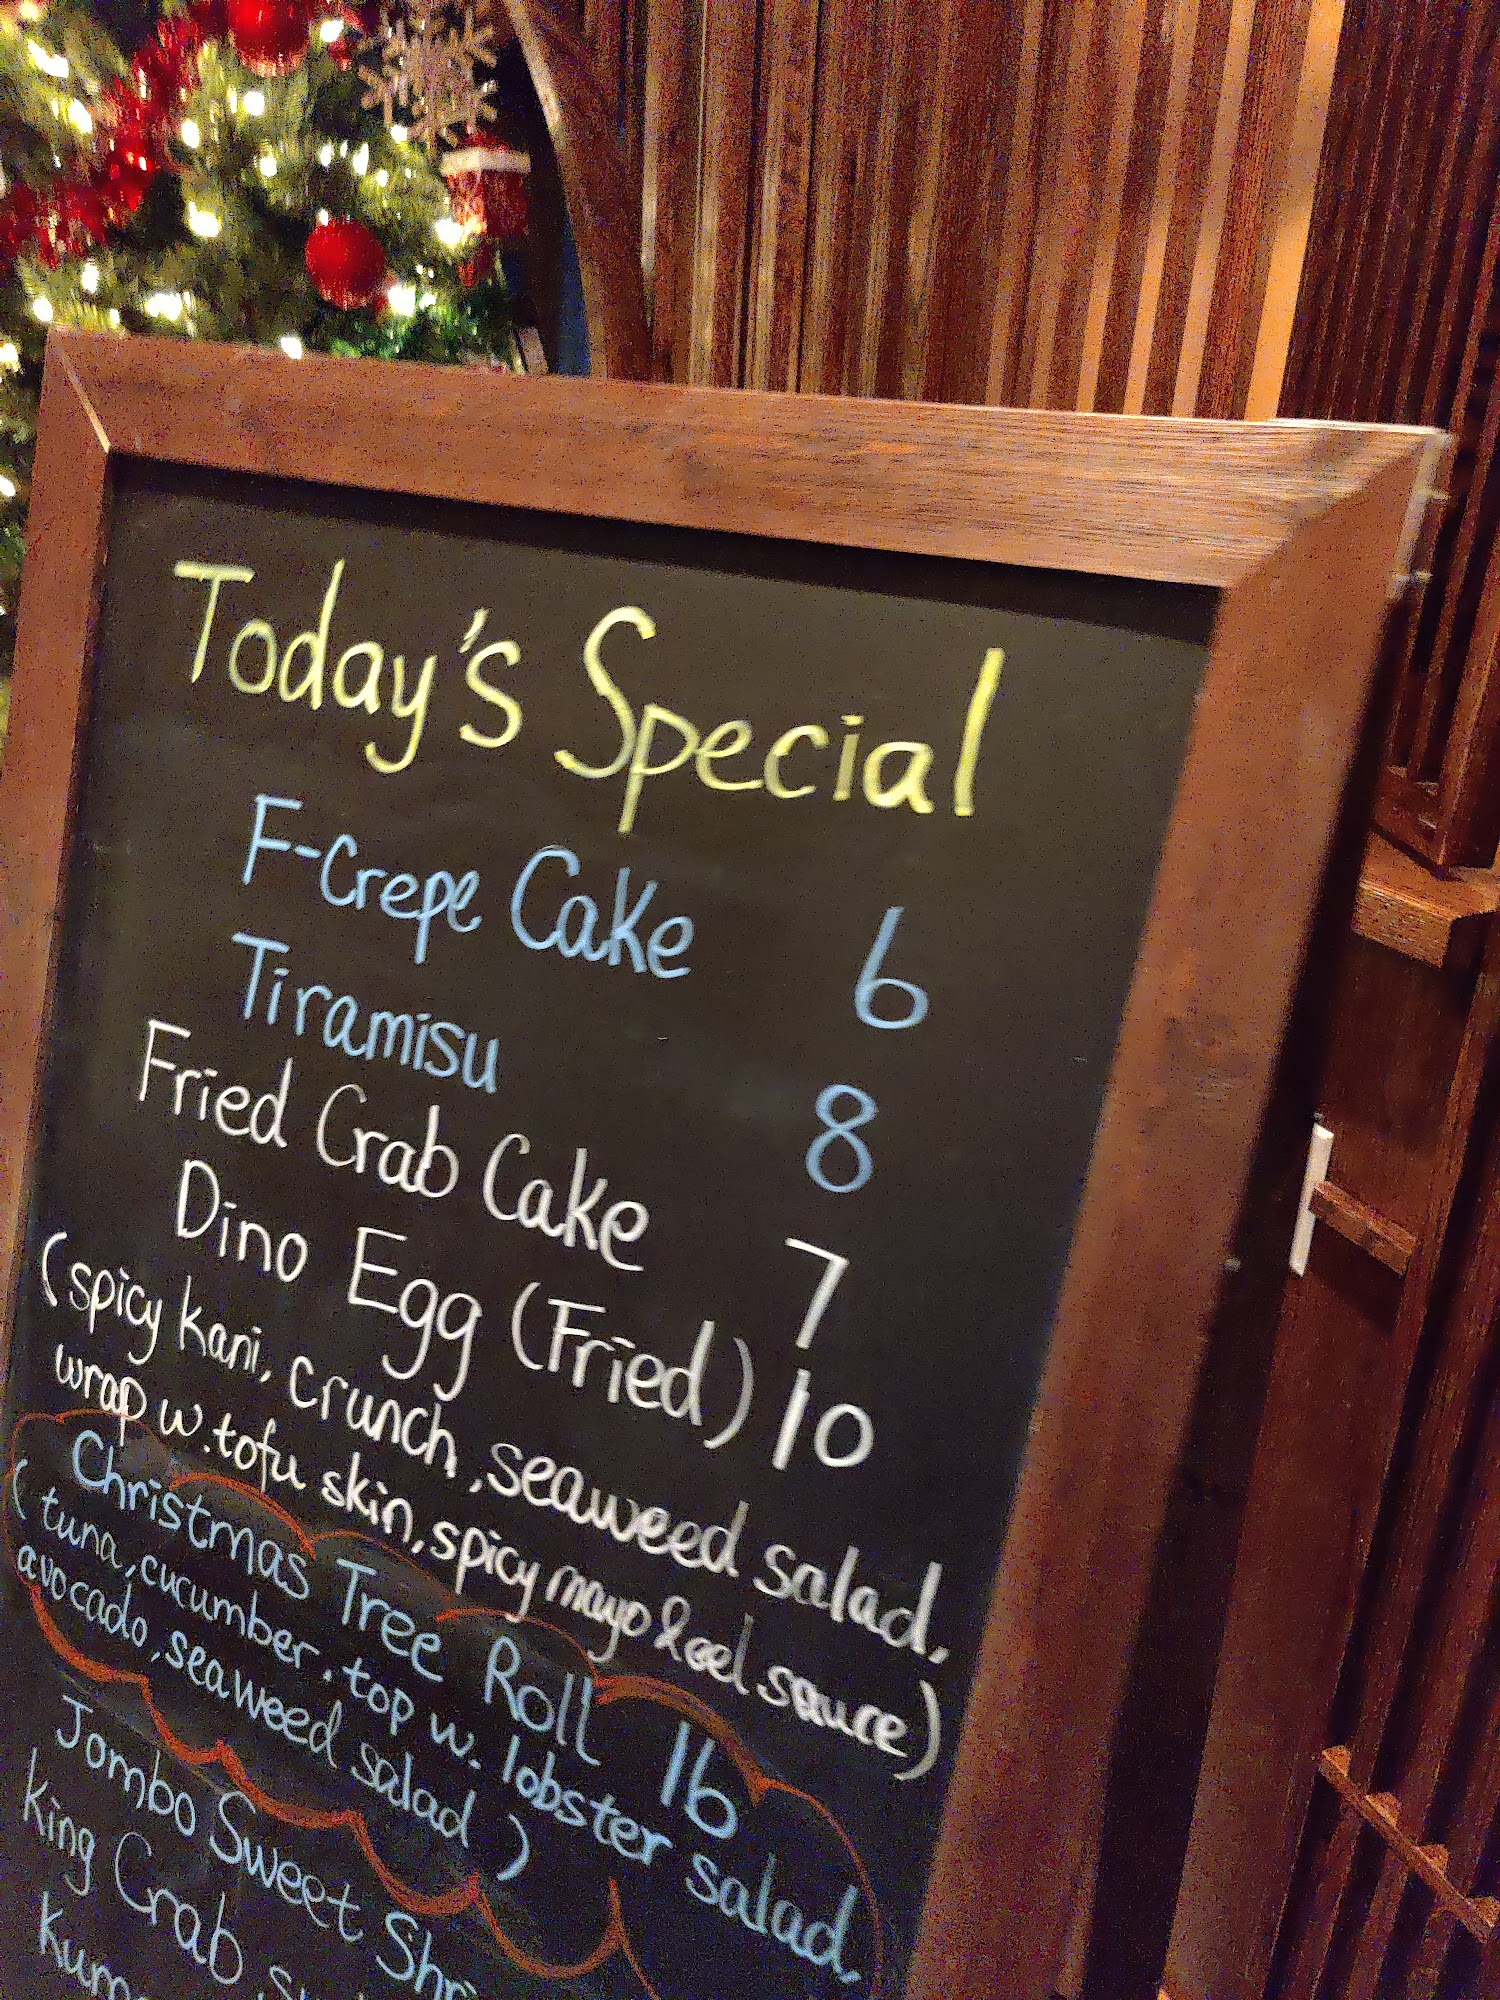 Today's Special
F-Crepe Cake 6
Tiramisu 8
Fried Crab Cake 7
Dino Egg (Fried) 10
(spicy kani, crunch, seaweed salad,
wrap w. tofu skin, spicy mayo & eel sauce)
Christmas Tree Roll 16
(tuna, cucumber. top w. lobster salad,
avocado, seaweed salad)
Jombo Sweet
King Crab